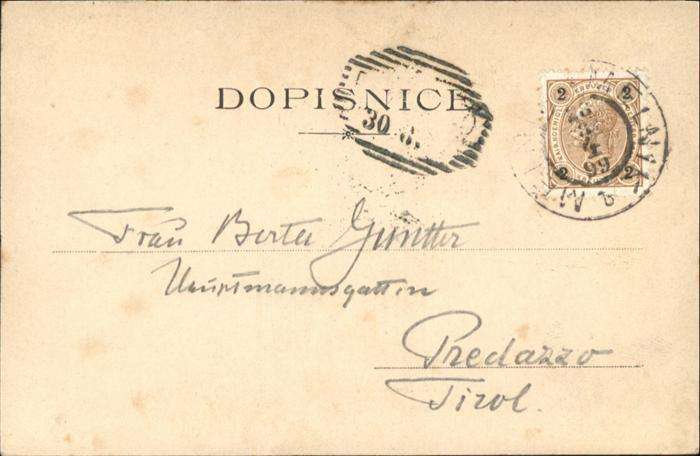 DOPISNICE
30 6.
2 2
99
2 2
Frau Berta Gunther
Hauptmannsgattin
Predazzo
Tirol.